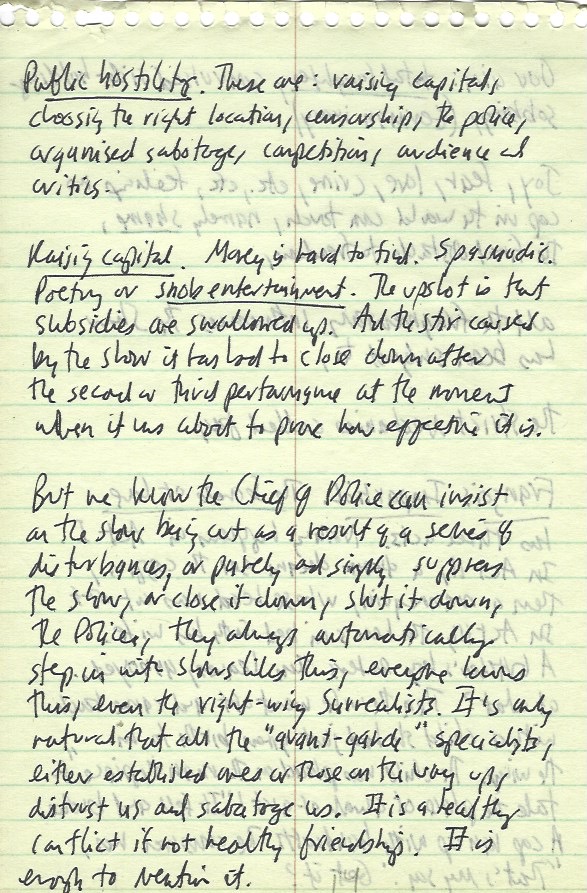 Public hostility. These are: raising capital,
choosing the right location, censorship, the police,
organised sabotage, competition, audience and
critics.
Raising capital. Money is hard to find. Spasmodic.
Poetry or snob entertainment. The upshot is that
subsidies are swallowed up. And the stir caused
by the show it has had to close down after
the second or third performance at the moment
when it was about to prove how effective it is.
But we know the Chief of Police can insist
on the show being cut as a result of a series of
disturbances, or purely and simply suppress
the show, or close it down, shut it down,
the Police, they always automatically
step in with shows like this, everyone knows
this, even the right-wing Surrealists. It's only
natural that all the "avant-garde" specialists,
either established ones or those on the way up,
distrust us and sabotage us. It is a healthy
conflict if not healthy friendship. It is
enough to mention it.